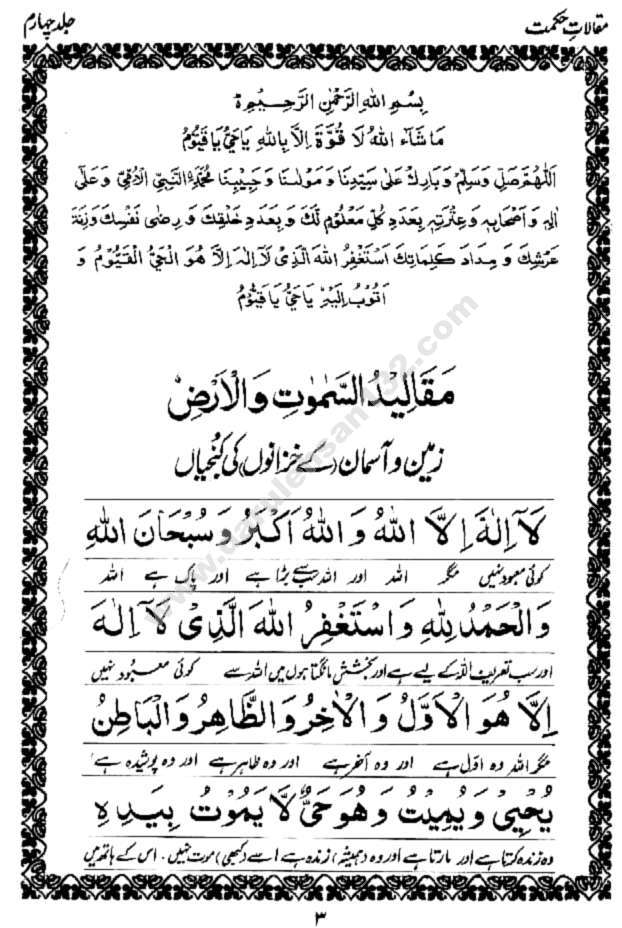 مقالاتِ حکمت
جلد چہارم
بِسْمِ اللهِ الرَّحْمٰنِ الرَّحِيْمِ ۃ
مَا شَآءَ اللهُ لَا قُوَّةَ اِلَّا بِاللهِ يَا حَيُّ يَا قَيُّوْمُ
اَللّٰهُمَّ صَلِّ وَسَلِّمْ وَ بَارِكْ عَلٰى سَيِّدِنَا وَ مَوْلٰسنَا وَ حَبِيْبِنَا مُحَمَّدِ النَّبِيِّ الْاُمِّيِّ وَ عَلٰى
اٰلِهٖ وَ اَصْحَابِهٖ وَ عِتْرَتِهٖ بِعَدَدِ كُلِّ مَعْلُوْمٍ لَّكَ وَ بِعَدَدِ خَلْقِكَ وَ رِضٰى نَفْسِكَ وَ زِنَةَ
عَرْشِكَ وَ مِدَادَ كَلِمَاتِكَ اَسْتَغْفِرُ اللهَ الَّذِيْ لَآ اِلٰهَ اِلَّا هُوَ الْحَيُّ الْقَيُّوْمُ وَ
اَتُوْبُ اِلَيْهِ يَا حَيُّ يَا قَيُّوْمُ
مَقَالِيْدُ السَّمٰوٰتِ وَالْاَرْضِ
زمین و آسمان (کے خزانوں) کی کنجیاں
لَآ اِلٰهَ اِلَّا اللهُ وَ اللهُ اَكْبَرُ وَ سُبْحَانَ اللهِ
کوئی معبود نہیں مگر اللہ اور اللہ سب سے بڑا ہے اور پاک ہے اللہ
وَالْحَمْدُ لِلّٰهِ وَ اَسْتَغْفِرُ اللهَ الَّذِيْ لَآ اِلٰهَ
اور سب تعریف اللہ کے لیے ہے اور بخشش مانگتا ہوں میں اللہ سے کوئی معبود نہیں
اِلَّا هُوَ الْاَوَّلُ وَ الْاٰخِرُ وَ الظَّاهِرُ وَ الْبَاطِنُ
مگر اللہ وہ اوّل ہے اور وہ آخر ہے اور وہ ظاہر ہے اور وہ پوشیدہ ہے
يُحْيِيْ وَ يُمِيْتُ وَ هُوَ حَيٌّ لَّا يَمُوْتُ بِيَدِهِ
وہ زندہ کرتا ہے اور مارتا ہے اور وہ (ہمیشہ) زندہ ہے اسے (کبھی) موت نہیں ۔ اس کے ہاتھ میں
٣